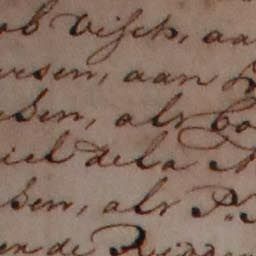 ob Visch, aa
ersen, aan
sen, als Co
iel de la
sen, als P.
en de Rui